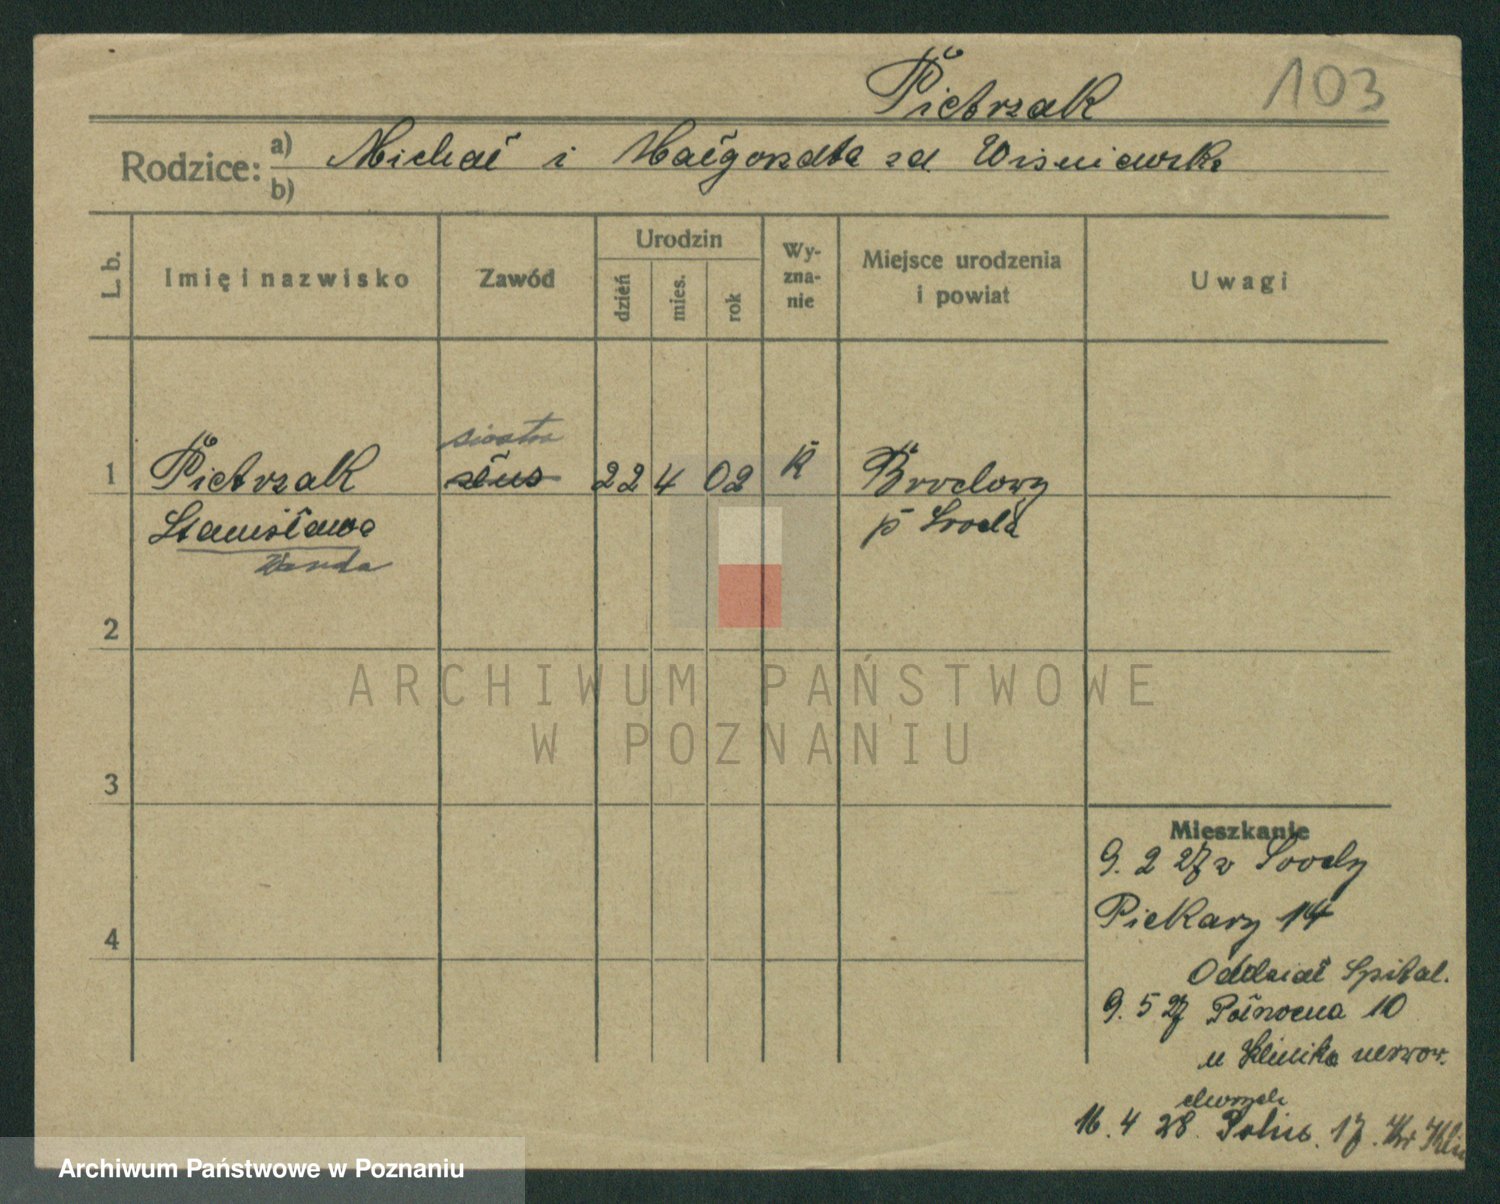 Pietrzak 103
Rodzice: a) Michał i Małgorzata zd Wiśniewska
b)
L. b. Imię i nazwisko Zawód Urodzin dzień mies. rok Wyznanie Miejsce urodzenia i powiat Uwagi
siostra
1 Pietrzak służ 22 4 02 k Brodowy
Stanisława p Środa
Wanda
2
ARCHIWUM PAŃSTWOWE
W POZNANIU
3
Mieszkanie
9. 2 27 z Środy
Piekary 14
4
Oddział Spital.
9. 5 27 Północna 10
u Klinika nerwow.
chorych
16. 4 28 Polna 17.
Archiwum Państwowe w Poznaniu